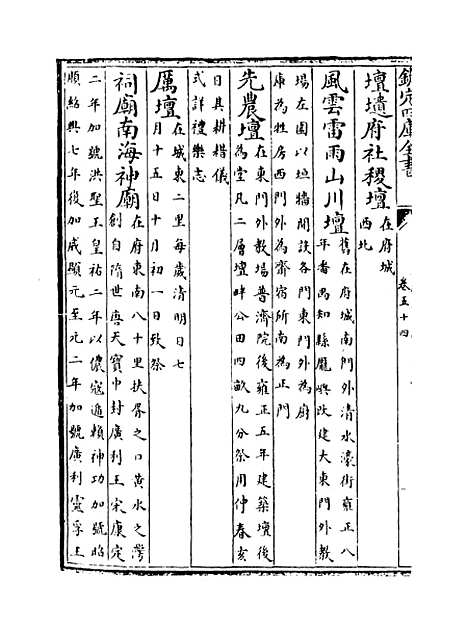 欽定四庫全書
卷五十四
壇壝府社稷壇在府城西北
風雲雷雨山川壇舊在府城南門外清水濠街雍正八年番禺知縣龐嶼改建大東門外教
場左園以垣牆間設各門東門外為廚庫為牲房西門外為齋宿所南為正門
先農壇在東門外教場普濟院後雍正五年建築壇後為堂凡二層壇畔公田四畝九分祭用仲春亥
日具耕耤儀式詳禮樂志
厲壇在城東二里每歲清明日七月十五日十月初一日致祭
祠廟南海神廟在府東南八十里扶胥之口黃水之灣創自隋世唐天寶中封廣利王宋康定
二年加號洪聖王皇祐二年以儂寇遁賴神功加號昭順紹興七年後加威顯元至元二年加號廣利靈孚王